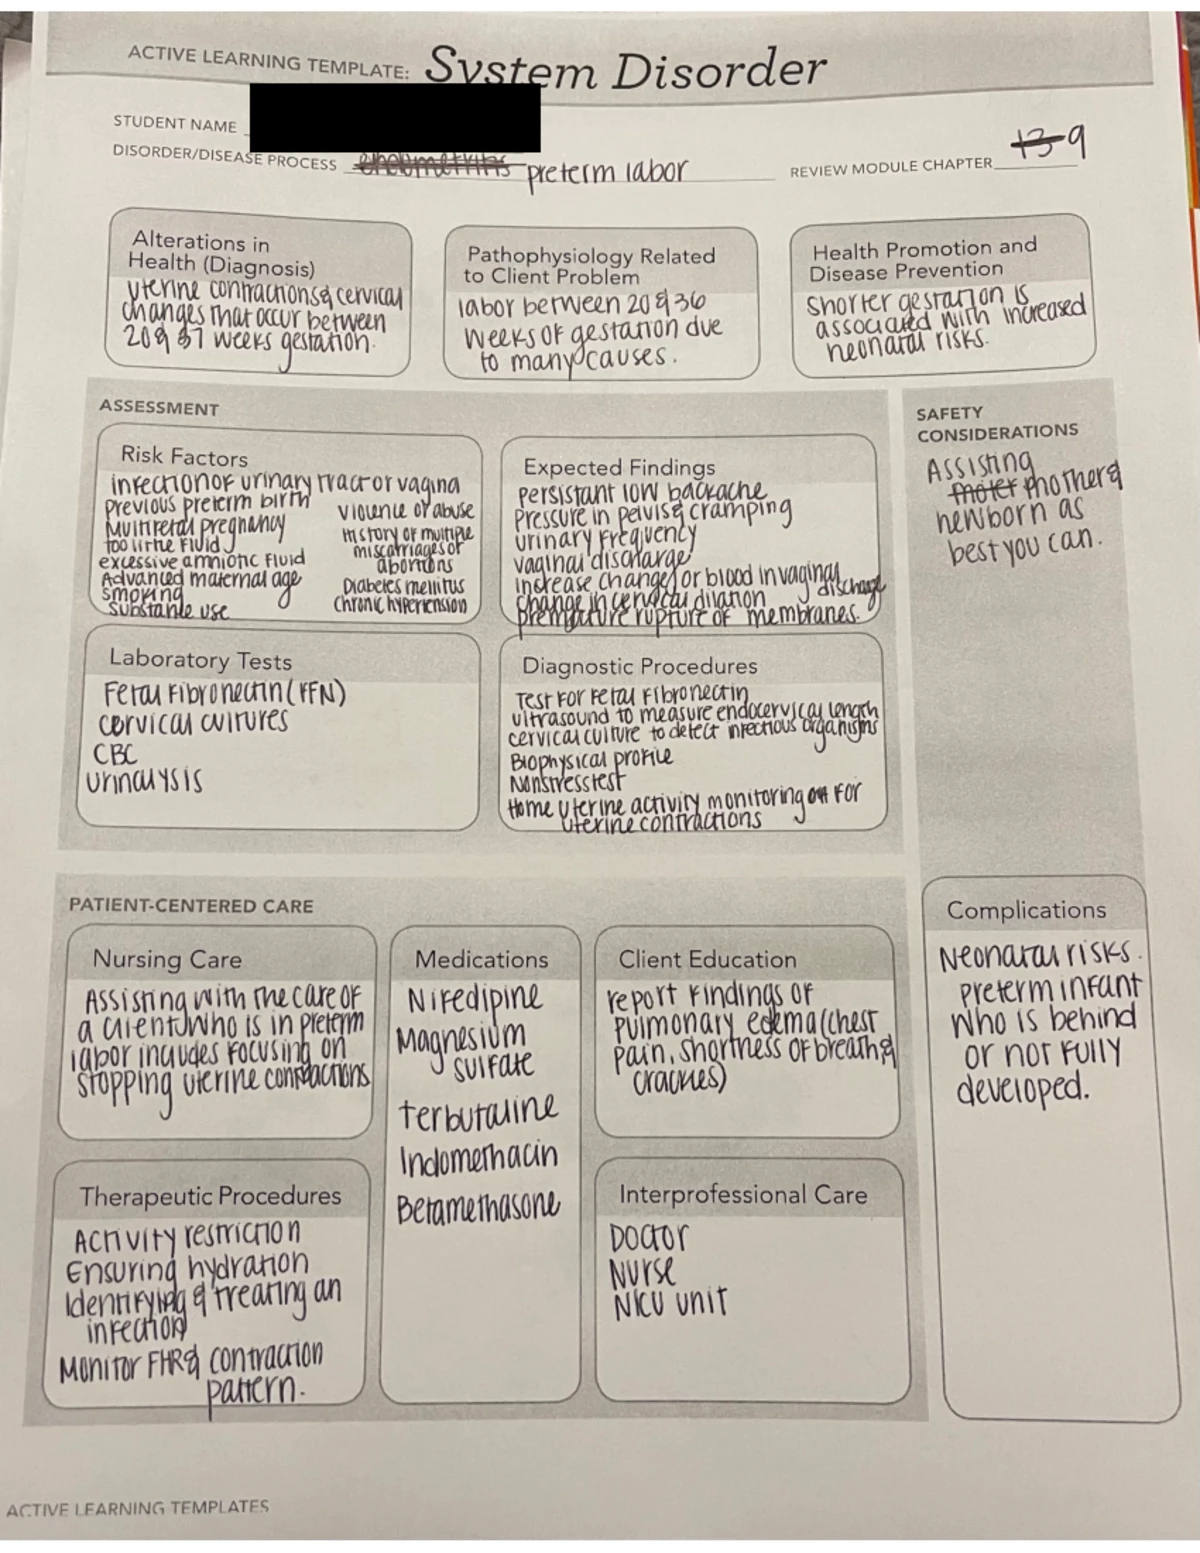 ACTIVE LEARNING TEMPLATE: System Disorder
STUDENT NAME
DISORDER/DISEASE PROCESS preterm labor
REVIEW MODULE CHAPTER 13 9
Alterations in
Health (Diagnosis)
uterine contractions & cervical
changes that occur between
20 & 37 weeks gestation.
Pathophysiology Related
to Client Problem
labor between 20 & 36
weeks of gestation due
to many causes.
Health Promotion and
Disease Prevention
Shorter gestation is
associated with increased
neonatal risks.
ASSESSMENT
Risk Factors
infection of urinary tract or vagina
previous preterm birth
Multifetal pregnancy
too little fluid
excessive amniotic fluid
Advanced maternal age
smoking
substance use
violence or abuse
history of multiple
miscarriages or
abortions
Diabetes mellitus
chronic hypertension
Expected Findings
persistant low backache
pressure in pelvis & cramping
urinary frequency
vaginal discharge
increase change/or blood in vaginal
discharge
change in cervical dilation
premature rupture of membranes.
SAFETY
CONSIDERATIONS
Assisting
moter mother &
newborn as
best you can.
Laboratory Tests
Fetal Fibronectin (FFN)
cervical cultures
CBC
urinalysis
Diagnostic Procedures
Test for Fetal Fibronectin
ultrasound to measure endocervical length
cervical culture to detect infectious organisms
Biophysical profile
Nonstress test
Home uterine activity monitoring for
uterine contractions
PATIENT-CENTERED CARE
Nursing Care
Assisting with the care of
a client who is in preterm
labor includes focusing on
stopping uterine contractions
Medications
Nifedipine
Magnesium
sulfate
terbutaline
Indomethacin
Betamethasone
Client Education
report findings of
pulmonary edema (chest
pain, shortness of breath &
crackles)
Complications
Neonatal risks.
preterm infant
who is behind
or not fully
developed.
Therapeutic Procedures
Activity restriction
Ensuring hydration
Identifying & treating an
infection
Monitor FHR & contraction
pattern.
Interprofessional Care
Doctor
Nurse
NICU unit
ACTIVE LEARNING TEMPLATES